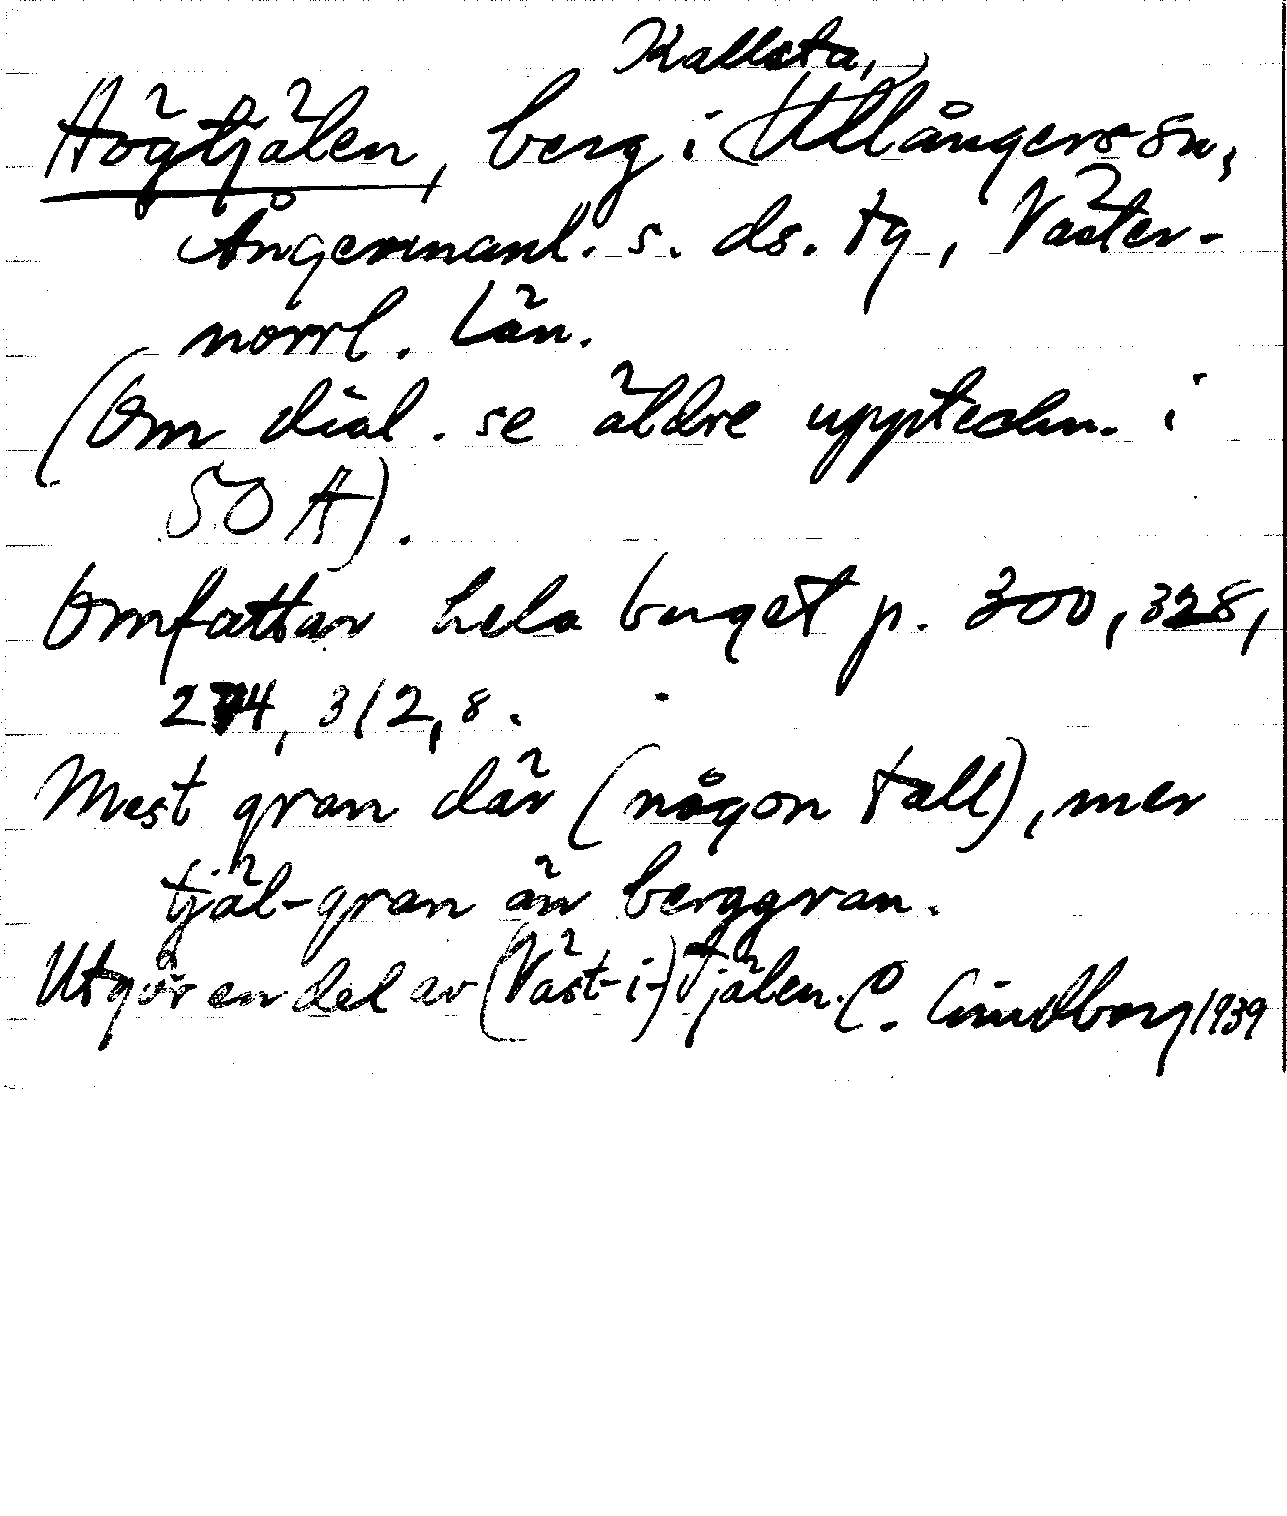 Kallsta,
Högtjälen, berg i Ullångers sn,
Ångermanl. s. ds. tg, Väster-
norrl. Län.
(Om dial. se äldre uppteckn. i
50 A).
Omfattar hela berget p. 300, 328,
274, 312,8.
Mest gran där (någon tall), mer
tjäl-gran än berggran.
Utgör en del av (Väst-i-)Tjälen. C. Lindberg 1939